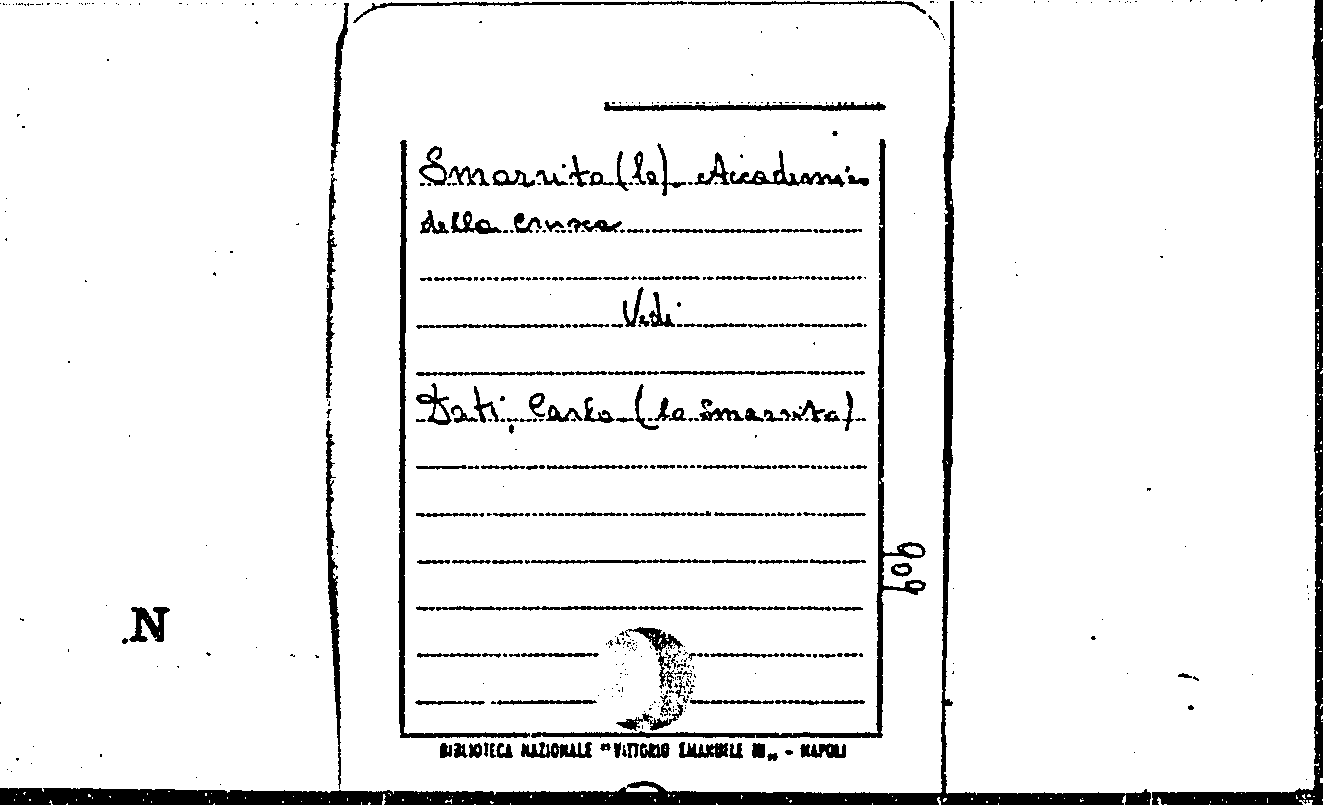 Smarrita (lo). Accademia
della Crusca
Vedi
Dati, Carlo (lo Smarrito)
909
N
BIBLIOTECA NAZIONALE "VITTORIO EMANUELE III„ - NAPOLI